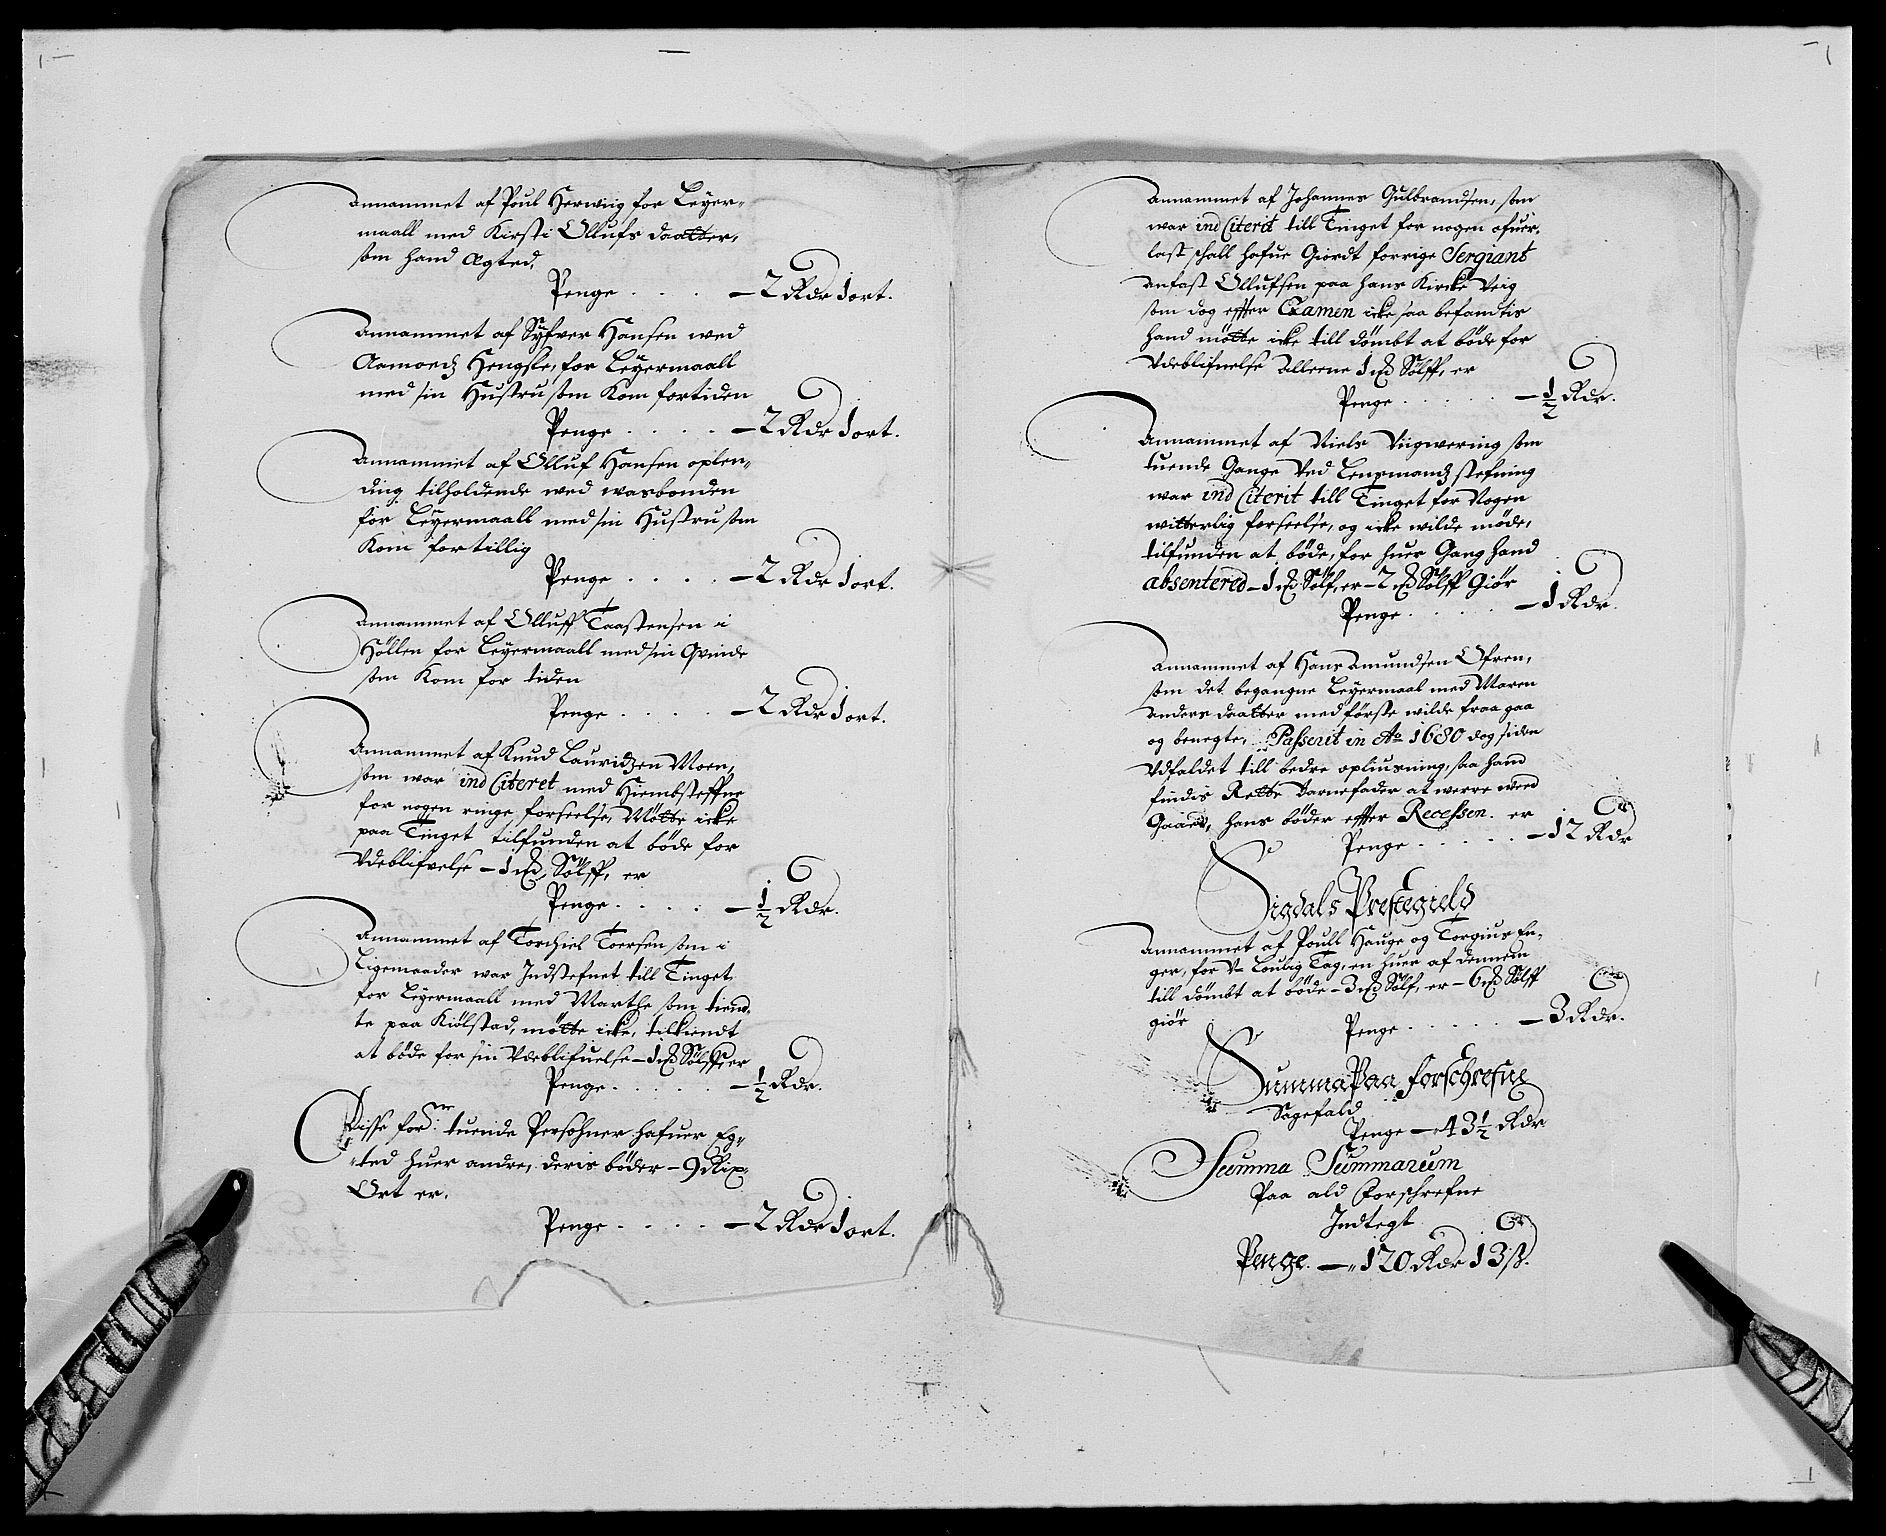 Annammet af Poul Herwiig for Leyer-
maall med Kirsti Ollufs daatter,
som hand ægted,
Penge . . . . — 2 Rdr 1 ort.
Annammet af Syfver Hansen wed
Aamoedz Hengsle, for Leyermaall
med sin Hustru som Kom fortiden
Penge . . . . — 2 Rdr 1 ort.
Annammet af Olluf Hansen oplen-
ding tilholdende wed wasbonden
for Leyermaall med sin Hustru som
Kom fortillig
Penge . . . . — 2 Rdr 1 ort.
Annammet af Olluff Taastensen i
Høllen for Leyermaall med sin Qvinde
som Kom for tiden
Penge . . . . — 2 Rdr 1 ort.
Annammet af Knud Lauridzen Moen,
som war ind Citeret med Hiembsteffne
for nogen ringe forseelse, Møtte icke
paa Tinget tilfunden at bøde for
Vdeblifvelse — 1 Sølff, er
Penge . . . . — ½ Rdr.
Annammet af Torchiel Toersen som i
Ligemaader war Indstefnet till Tinget
for Leyermaall med Marthe som tiend-
te paa Kiølstad, møtte icke, tilkiendt
at bøde for sin Vdeblifuelse — 1 Sølff er
Penge . . . . . — ½ Rdr.
Disse for: tuende Persohner hafuer Eg-
ted huer andre, deris bøder — 9 Rix
Ort er,
Penge . . . . — 2 Rdr 1 ort.
Annammet af Johannes Gulbrandsen, som
war ind Citerit till Tinget for nogen ofuer-
last schall hafue Giordt forrige Sergiant
Anfast Ollufsen paa hans Kircke Veig
som dog effter Examen icke saa befandtis
hand møtte icke till dømbt at bøde for
Vdeblifuelse alleene 1 Sølff, er
Penge . . . . . — ½ Rdr.
Annammet af Niels Viigwering som
tuende Gange Ved Lensmandz stefning
war ind Citerit till Tinget for Nogen
witterlig forseelse, og icke wilde møde,
tilfunden at bøde, for huer Gang hand
absentered — 1 Sølf, er — 2 Sølff Giør
Penge . . . . . — 1 Rdr.
Annammet af Hans Amundsen Ofren,
som det begangne Leyermaal med Maren
Anders daatter med første wilde fraa gaa
og benegte, Passerit in Ao 1680 dog siden
Vdfaldet till bedre opliusning, saa hand
findis Rette Barnefader at werre weed
Gaaed, hans bøder effter Recessen er
Penge . . . . . — 12 Rdr
Sigdals Prestegield
Annammet af Poull Hauge og Torgius En-
ger, for V- Loulig Tag, en huer af dennem
till dømbt at bøde — 3 Sølf, er — 6 Sølff
giør
Penge . . . . . — 3 Rdr.
Summa Paa forschrefne
Sagefald
Penge — 43 ½ Rdr
Summa Summarum
Paa ald Forschrefne
Indtegt
Penge — 120 Rdr 13 ß.